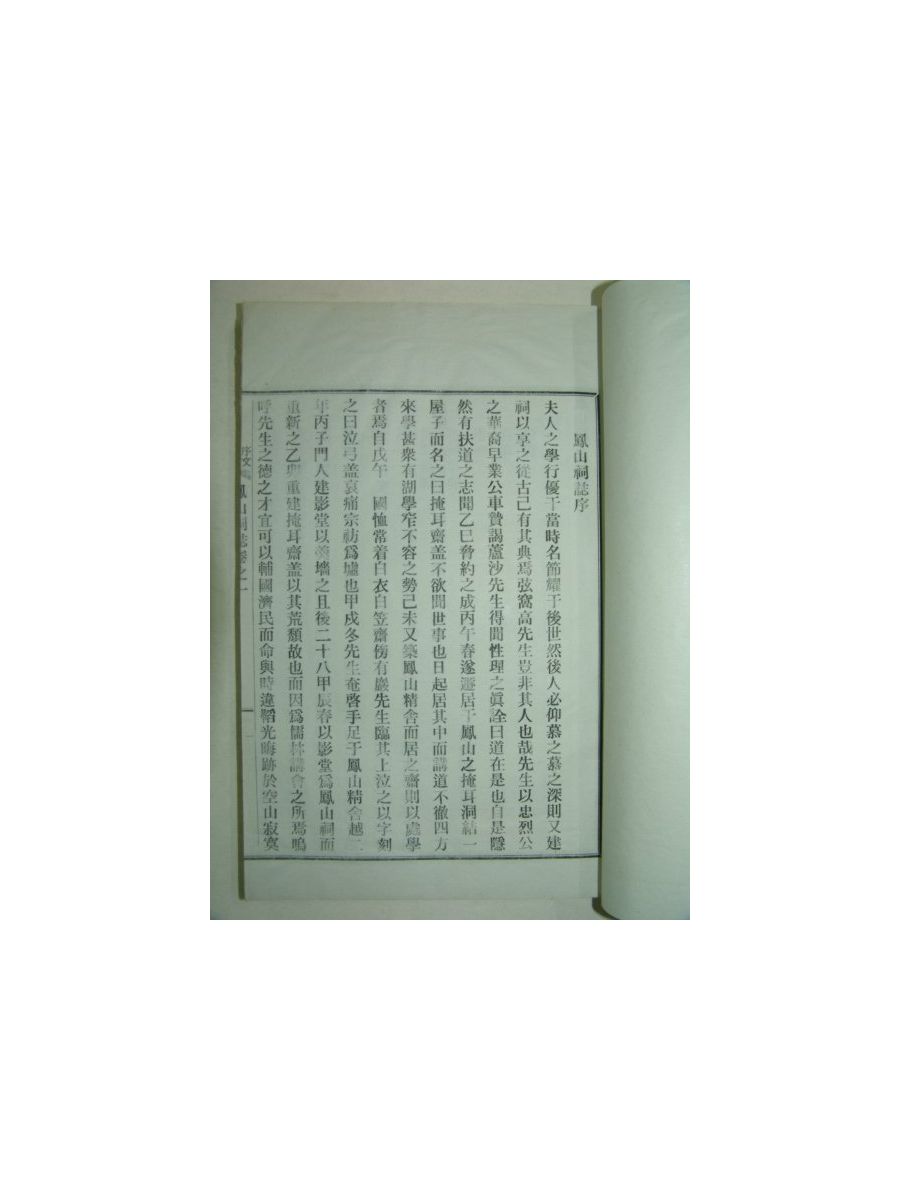 鳳山祠誌序
夫人之學行優于當時名節耀于後世然後人必仰慕之慕之深則又建
祠以享之從古已有其典焉弦窩高先生豈非其人也哉先生以忠烈公
之華裔早業公車贄謁蘆沙先生得聞性理之眞詮曰道在是也自是隱
然有扶道之志聞乙巳脅約之成丙午春遂遯居于鳳山之掩耳洞結一
屋子而名之曰掩耳齋盖不欲聞世事也日起居其中而講道不徹四方
來學甚衆有湖學窄不容之勢己未又築鳳山精舍而居之齋則以處學
者焉自戊午 國恤常着白衣白笠齋傍有巖先生臨其上泣之以字刻
之曰泣弓盖哀痛宗祊爲墟也甲戍冬先生奄啓手足于鳳山精舍越二
年丙子門人建影堂以羹墻之且後二十八甲辰春以影堂爲鳳山祠而
重新之乙巳重建掩耳齋盖以其荒頹故也而因爲儒林講會之所焉嗚
呼先生之德之才宜可以輔國濟民而命與時違韜光晦跡於空山寂寞
序文 鳳山祠誌卷之一 一